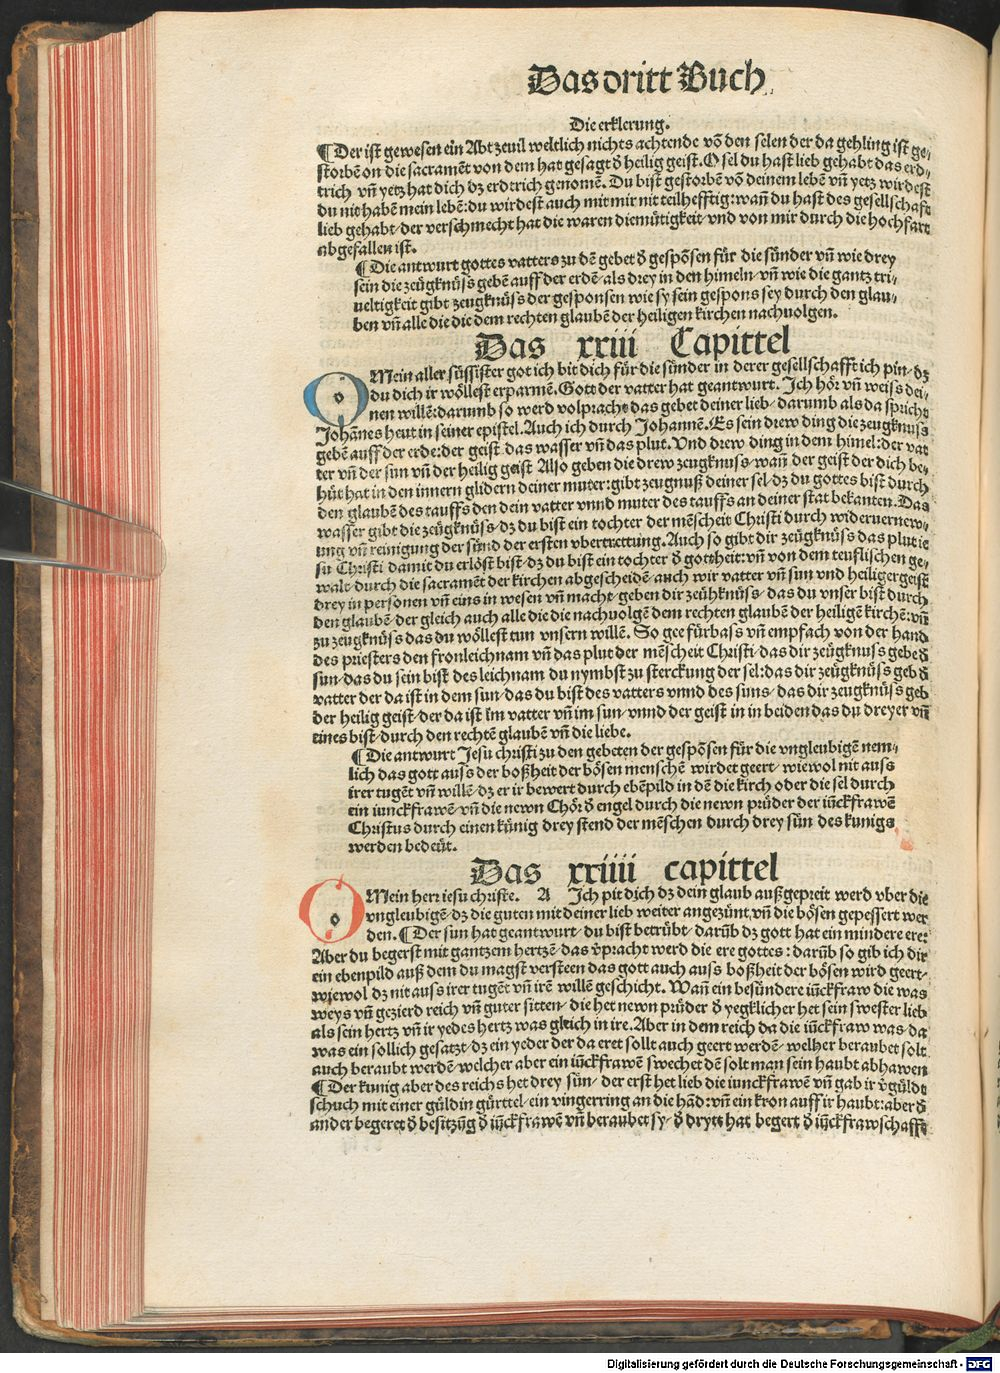 Das dritt Buch
Die erklerung.
¶ Der ist gewesen ein Abt zeuil weltlich nichts achtende võ den selen der da gehling ist ge⸗
storbẽ on die sacramẽt von dem hat gesagt d̕ heilig geist. O sel du hast lieb gehabt das erd⸗
trich vñ yetz hat dich dz erdtrich genomẽ. Du bist gestorbẽ võ deinem lebẽ vñ yetz wirdest
du nit habẽ mein lebẽ: du wirdest auch mit mir nit teilhefftig: wañ du hast des gesellschafft
lieb gehabt/ der verschmecht hat die waren diemütigkeit/ vnd von mir durch die hochfart
abgefallen ist.
¶ Die antwurt gottes vatters zu dẽ gebet d̕ gespõsen für die sünder vñ wie drey
sein die zeügknüss gebẽ auff der erdẽ/ als drey in den himeln/ vñ wie die gantz tri⸗
ueltigkeit gibt zeugknüss der gesponsen wie sy sein gespons sey durch den glau⸗
ben vñ alle die die dem rechten glaubẽ der heiligen kirchen nachuolgen.
Das xxiii Capittel
O Mein aller süssister got ich bit dich für die sünder in derer gesellschafft ich pin/ dz
du dich ir wöllest erparmẽ. Gott der vatter hat geantwurt. Ich hör vñ weiss dei⸗
nen willẽ: darumb so werd volpracht das gebet deiner lieb/ darumb als da spricht
Johãnes heut in seiner epistel. Auch ich durch Johannẽ. Es sein drew ding die zeugknuss
gebẽ auff der erde: der geist/ das wasser vñ das plut. Vnd drew ding in dem himel: der vat
ter vñ der sun vñ der heilig geist Also geben die drew zeugknuss/ wañ der geist der dich be⸗
hüt hat in den innern glidern deiner muter: gibt zeugnuß deiner sel/ dz du gottes bist durch
den glaubẽ des tauffs den dein vatter vnnd muter des tauffs an deiner stat bekanten. Das
wasser gibt die zeügknüss/ dz du bist ein tochter der mẽscheit Christi durch wideruernew⸗
ung vñ reinigung der sünd der ersten vbertrettung. Auch so gibt dir zeügknüss das plut ie
su Christi damit du erlöst bist/ dz du bist ein tochter d̕ gottheit: vñ von dem teuflischen ge⸗
walt/ durch die sacramẽt der kirchen abgescheidẽ/ auch wir vatter vñ sun vnd heiliger geist
drey in personen vñ eins in wesen vñ macht/ geben dir zeühknüss/ das du vnser bist durch
den glaubẽ/ der gleich auch alle die die nachuolgẽ dem rechten glaubẽ der heiligẽ kirchẽ: vñ
zu zeugknüss das du wöllest tun vnsern willẽ. So gee fürbass vñ empfach von der hand
des priesters den fronleichnam vñ das plut der mẽscheit Christi/ das dir zeügknuss gebe d̕
sun/ das du sein bist des leichnam du nymbst zu sterckung der sel: das dir zeügknüss geb d̕
vatter der da ist in dem sun/ das du bist des vatters vnnd des suns/ das dir zeugknüss geb
der heilig geist/ der da ist im vatter vñ im sun/ vnnd der geist in in beiden das du dreyer vñ
eines bist/ durch den rechtẽ glaubẽ vñ die liebe.
¶ Die antwurt Jesu christi zu den gebeten der gespõsen für die vngleubigẽ nem⸗
lich das gott auss der boßheit der bösen menschẽ wirdet geert/ wiewol nit auss
irer tugẽt vñ willẽ/ dz er ir bewert durch ebẽpild in dẽ die kirch oder die sel durch
ein iunckfrawẽ/ vñ die newn Chör d̕ engel durch die newn prüder der iũckfrawẽ
Christus durch einen künig drey stend der mẽschen durch drey sün des kunigs
werden bedeüt.
Das xxiiii capittel
O Mein herr iesu christe. A Ich pit dich dz dein glaub außgepreit werd vber die
vngleubigẽ/ dz die guten mit deiner lieb weiter angezünt, vñ die bösen gepessert wer
den. ¶ Der sun hat geantwurt/ du bist betrübt/ darũb dz gott hat ein mindere ere:
Aber du begerst mit gantzem hertzẽ/ das v̕pracht werd die ere gottes: darũb so gib ich dir
ein ebenpild auß dem du magst versteen das gott auch auss boßheit der bösen wird geert/
wiewol dz nit auss irer tugẽt vñ irẽ willẽ geschicht. Wañ ein besũdere iũckfraw die was
weys vñ gezierd reich vñ guter sitten/ die het newn prüder d̕ yegklicher het sein swester lieb
als sein hertz vñ ir yedes hertz was gleich in ire. Aber in dem reich da die iũckfraw was/ da
was ein sollich gesatzt/ dz ein yeder der da eret sollt auch geert werdẽ/ welher beraubet solt
auch beraubt werdẽ/ welcher aber ein iũckfrawẽ swechet dẽ solt man sein haubt abhawen
¶ Der kunig aber des reichs het drey sün/ der erst het lieb die iunckfrawẽ vñ gab ir v̕güldt
schuch mit einer güldin gürttel/ ein vingerring an die hãd: vñ ein kron auff ir haubt: aber d̕
ander begeret d̕ besitzũg d̕ iũckfrawẽ vñ beraubet sy/ d̕ drytt hat begert d̕ iũckfrawschafft
Digitalisierung gefördert durch die Deutsche Forschungsgemeinschaft - DFG